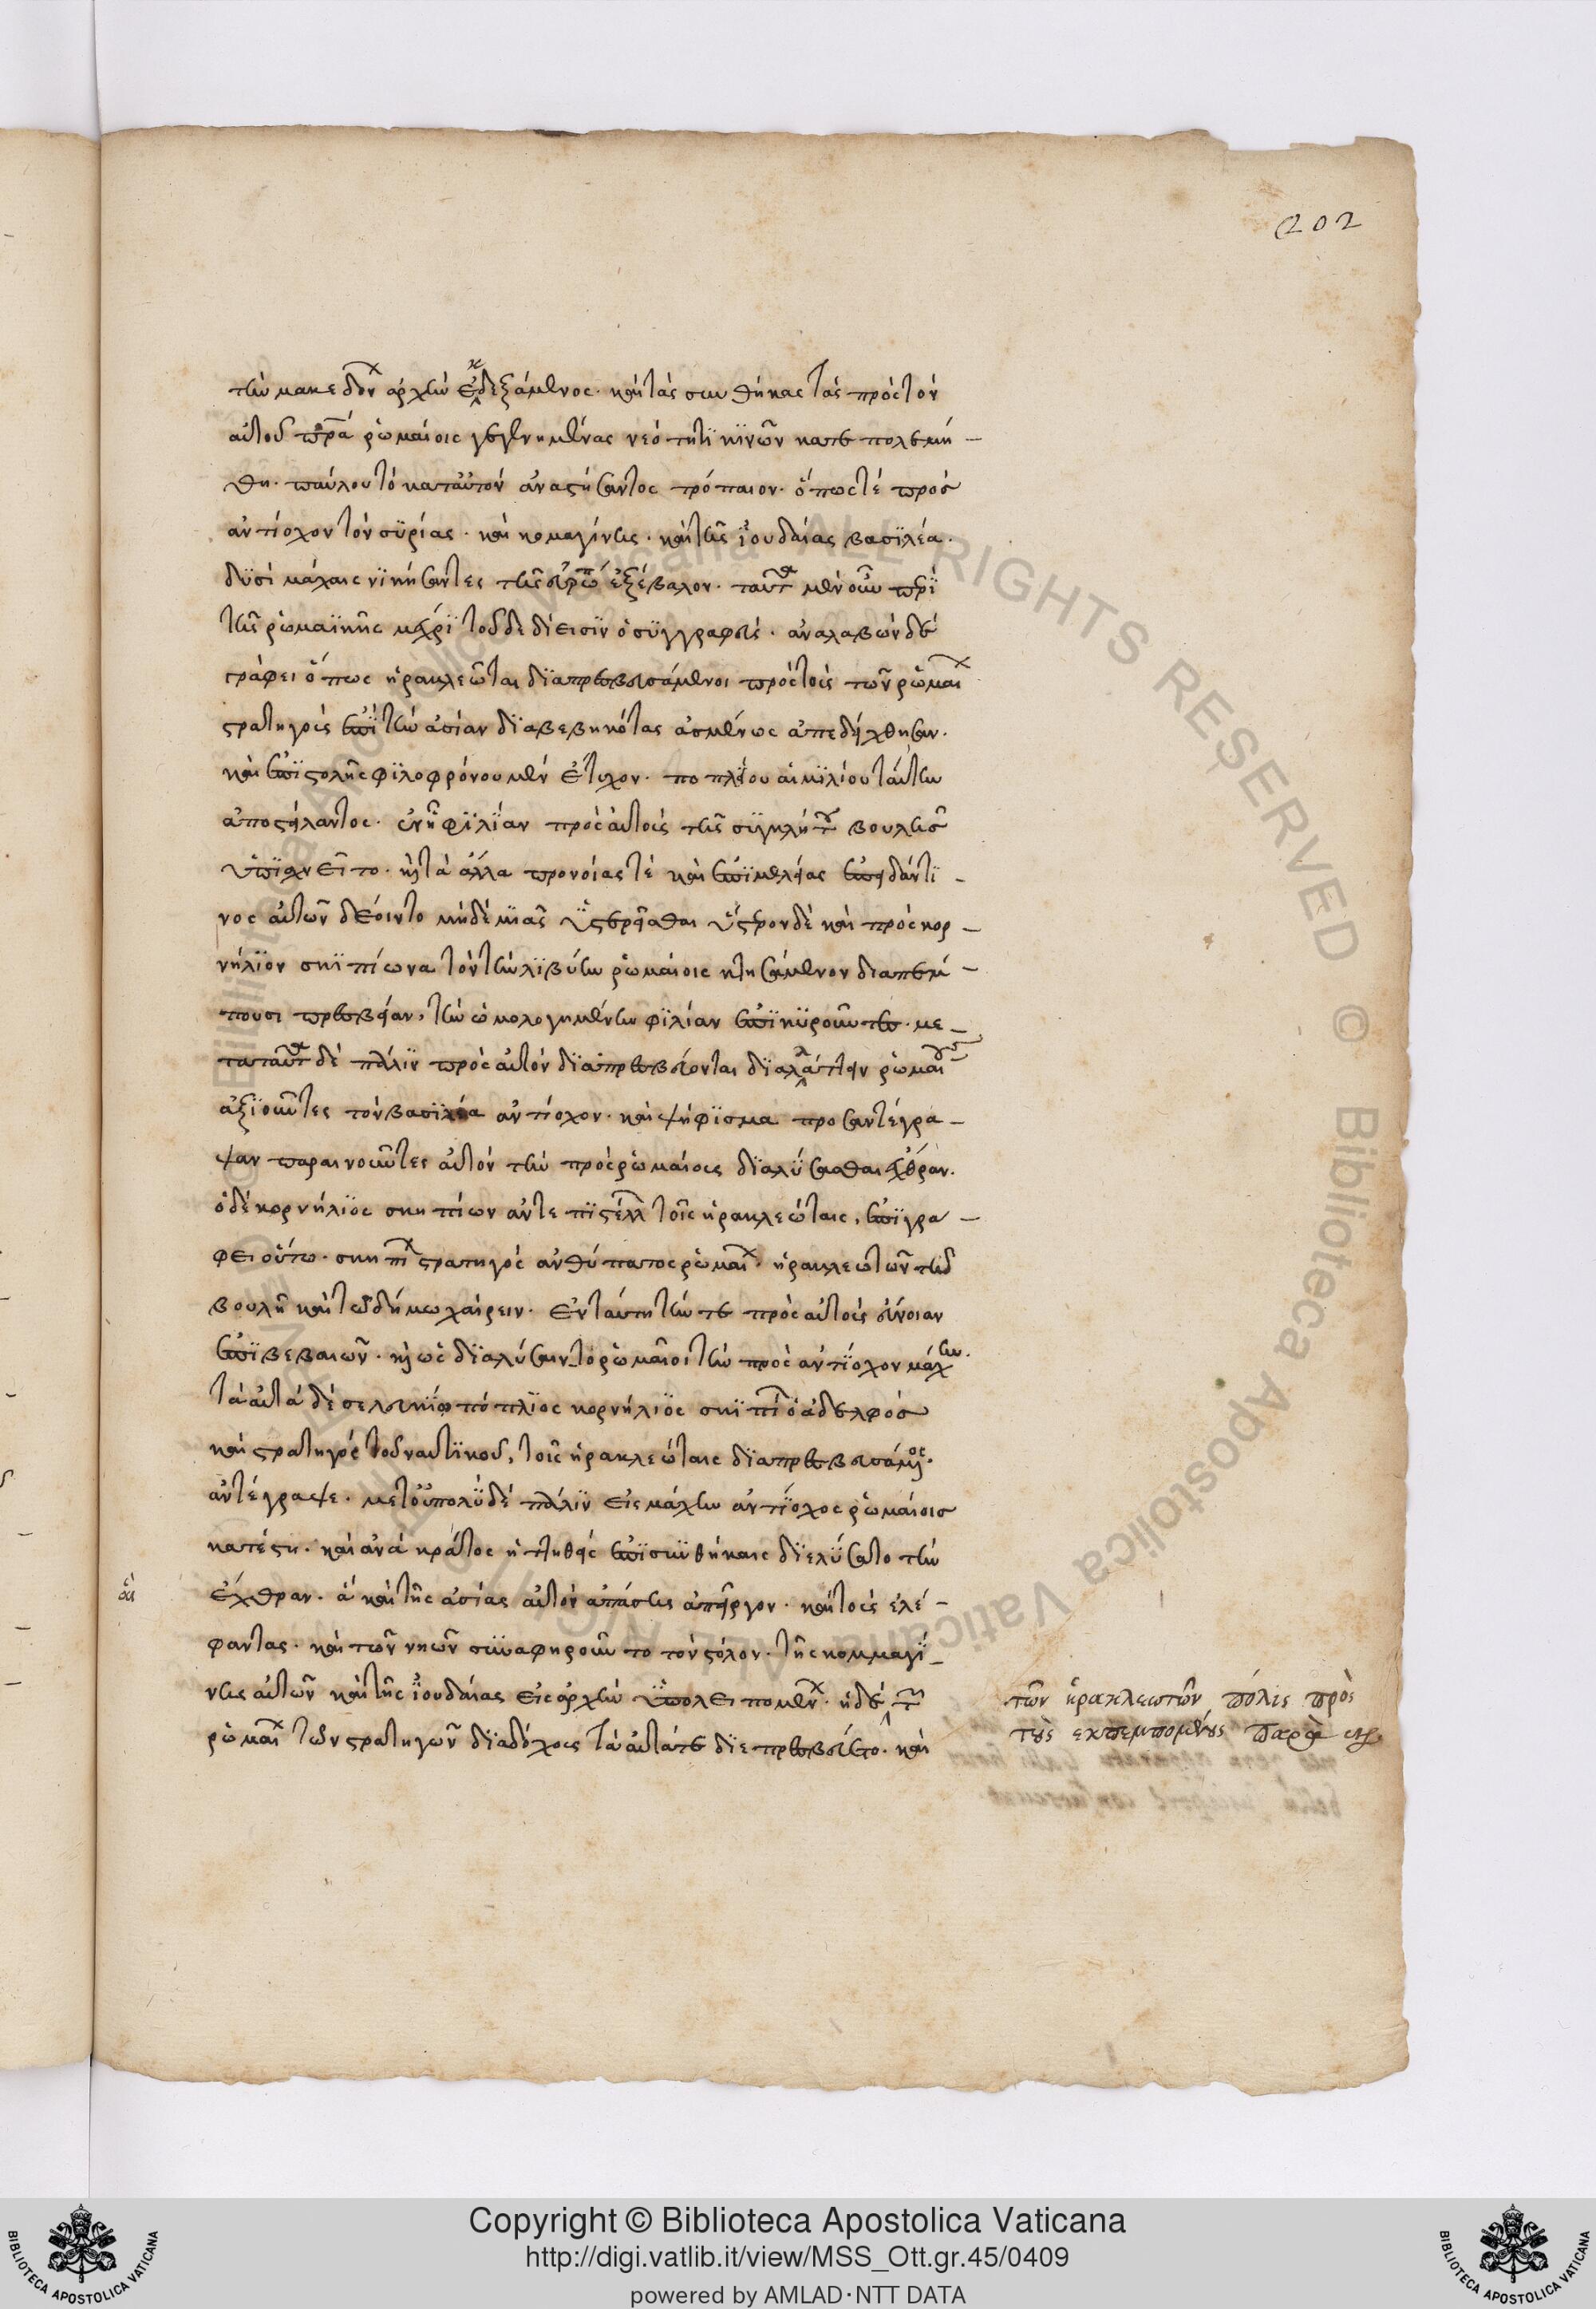 202
τὴν μακεδόνων ἀρχὴν ἐκδεξάμενος. καὶ τὰς συνθήκας τὰς πρὸς τὸν
αὐτοῦ πρα ῥωμαίοις γεγενημένας νεότητι κινῶν κατεπολεμή-
θη. παύλου τὸ κατ' αὐτὸν ἀναστήσαντος τρόπαιον. ὅπως τὲ πρὸς
ἀντίοχον τὸν συρίας. καὶ κομαγίνης. καὶ τῆς ἰουδαίας βασιλέα.
δυσὶ μάχαις νικήσαντες τῆς εὐρώπ ἐξέβαλον. ταῦτα μὲν οὖν περὶ
τῆς ῥωμαϊκῆς μέχρι τοῦδε δίεισιν ὁ συγγραφεύς. ἀναλαβὼν δὲ
γράφει ὅπως ἡρακλεῶται διαπρεσβευσάμενοι πρὸς τοὺς τῶν ῥωμαίων
στρατηγοὺς ἐπὶ τὴν ἀσίαν διαβεβηκότας ἀσμένως ἀπεδέχθησαν.
καὶ ἐπιστολῆς φιλοφρόνου μὲν ἔτυχον. ποπλίου αἰμιλίου ταύτην
ἀποστείλαντος. ἐν ᾗ φιλίαν πρὸς αὐτοὺς τῆς συγκλήτου βουλῆς
ὑπισχνεῖτο. καὶ τὰ ἄλλα προνοίας τὲ καὶ ἐπιμελείας ἐπειδάν τι-
νος αὐτῶν δέοιντο μηδεμιᾶς ὑστερεῖσθαι ὕστερον δὲ καὶ πρὸς κορ-
νήλιον σκιπίωνα τὸν τὴν λιβύην ῥωμαίοις κτησάμενον διαπέμ-
πουσι πρεσβείαν, τὴν ὡμολογημένην φιλίαν ἐπικυροῦντες. με-
τὰ ταῦτα δὲ πάλιν πρὸς αὐτὸν διαπρεσβεύονται διαλλάττειν ῥωμαίοις
ἀξιοῦντες τὸν βασιλέα ἀντίοχον. καὶ ψήφισμα προσαντέγρα-
ψαν παραινοῦντες αὐτὸν τὴν πρὸς ῥωμαίους διαλύσασθαι ἔχθραν.
ὁ δὲ κορνήλιος σκηπίων ἀντεπιστέλλ τοῖς ἡρακλεώταις, ἐπιγρά-
φει οὕτω. σκηπίων στρατηγὸς ἀνθύπατος ῥωμαίων. ἡρακλεωτῶν τῇ
βουλῇ καὶ τῷ δήμῳ χαίρειν. ἐν ταύτῃ τήν τε πρὸς αὐτοὺς εὔνοιαν
ἐπιβεβαιῶν. καὶ ὡς διαλύσαιντο ῥωμαῖοι τὴν πρὸς ἀντίοχον μάχην.
τὰ αὐτὰ δὲ πόπλιος κορνήλιος σκιπί ὁ ἀδελφὸς
καὶ στρατηγὸς τοῦ ναυτικοῦ, τοῖς ἡρακλεώταις διαπρεσβευσάμ
ἀντέγραψε. μετ' οὐ πολὺ δὲ πάλιν εἰς μάχην ἀντίοχος ῥωμαίοις
κατέστη. καὶ ἀνὰ κράτος ἡττηθεὶς ἐπὶ συνθήκαις διελύσατο τὴν
ἔχθραν. ἃ καὶ τῆς ἀσίας αὐτὸν ἁπάσης ἀπεῖργον. καὶ τοὺς ἐλέ-
φαντας. καὶ τῶν νηῶν συναφῃροῦντο τὸν στόλον. τῆς κομμαγί-
νης αὐτῶν καὶ τῆς ἰουδαίας εἰς ἀρχὴν ὑπολειπομένων. ἡ δὲ τ
ῥωμαίων τῶν στρατηγῶν διαδόχους τὰ αὐτά τε διεπρεσβεύετο. καὶ
τῶν ἡρακλεωτῶν πόλις πρὸς
τοὺς ἐκπεμπομένους παρὰ
Copyright © Biblioteca Apostolica Vaticana
http://digi.vatlib.it/view/MSS_Ott.gr.45/0409
powered by AMLAD·NTT DATA